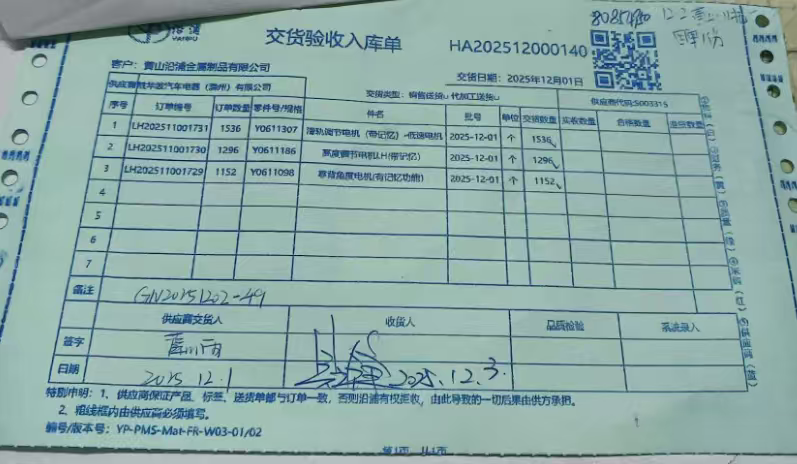 沿浦
YANPU
交货验收入库单
HA202512000140
8085480
客户：黄山沿浦金属制品有限公司
交货日期：2025年12月01日
供应商:胜华波汽车电器（滁州）有限公司
交货类型：销售送货 代加工送货
供应商代码:S003315
序号 订单编号 订单数量 零件号/规格 件名 批号 单位 交货数量 实收数量 合格数量 退货数量
1 LH202511001731 1536 Y0611307 滑轨调节电机（带记忆）-低速电机 2025-12-01 个 1536
2 LH202511001730 1296 Y0611186 高度调节电机LH(带记忆) 2025-12-01 个 1296
3 LH202511001729 1152 Y0611098 靠背角度电机(有记忆功能) 2025-12-01 个 1152
4
5
6
7
备注 GN20251202-49
供应商交货人 收货人 品质检验 系统录入
签字
日期 2025.12.1 2025.12.3.
特别申明：1、供应商保证产品、标签、送货单都与订单一致，否则沿浦有权拒收，由此导致的一切后果由供方承担。
2、粗线框内由供应商必须填写。
编号/版本号：YP-PMS-Mat-FR-W03-01/02
第1页 共1页